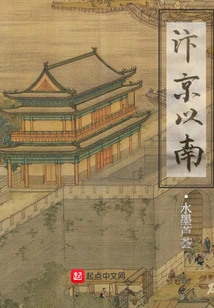 汴京以南
·水墨芦裟
起点中文网